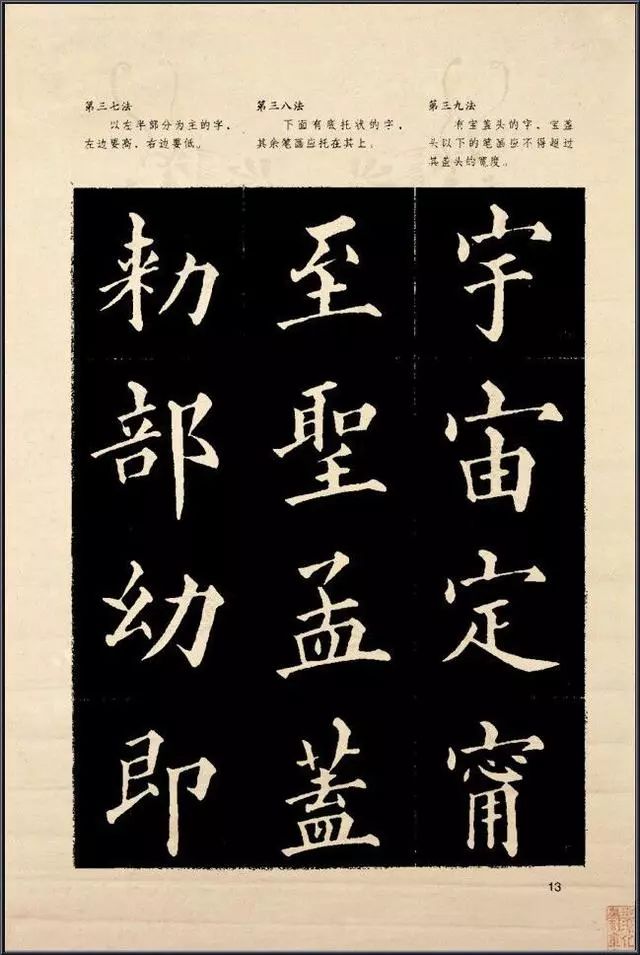 第三七法
以左半部分为主的字，
左边要高，右边要低。
第三八法
下面有底托状的字，
其余笔画应托在其上。
第三九法
有宝盖头的字，宝盖
头以下的笔画应不得超过
其盖头的宽度。
勑部幼即
至聖孟蓋
宇宙定甯
13